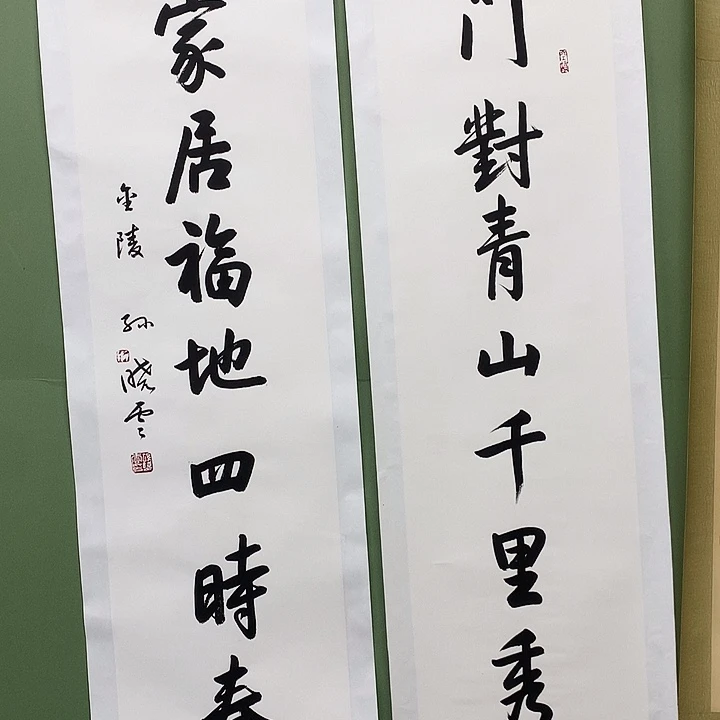 門對青山千里秀
家居福地四時春
金陵 孙晓雲